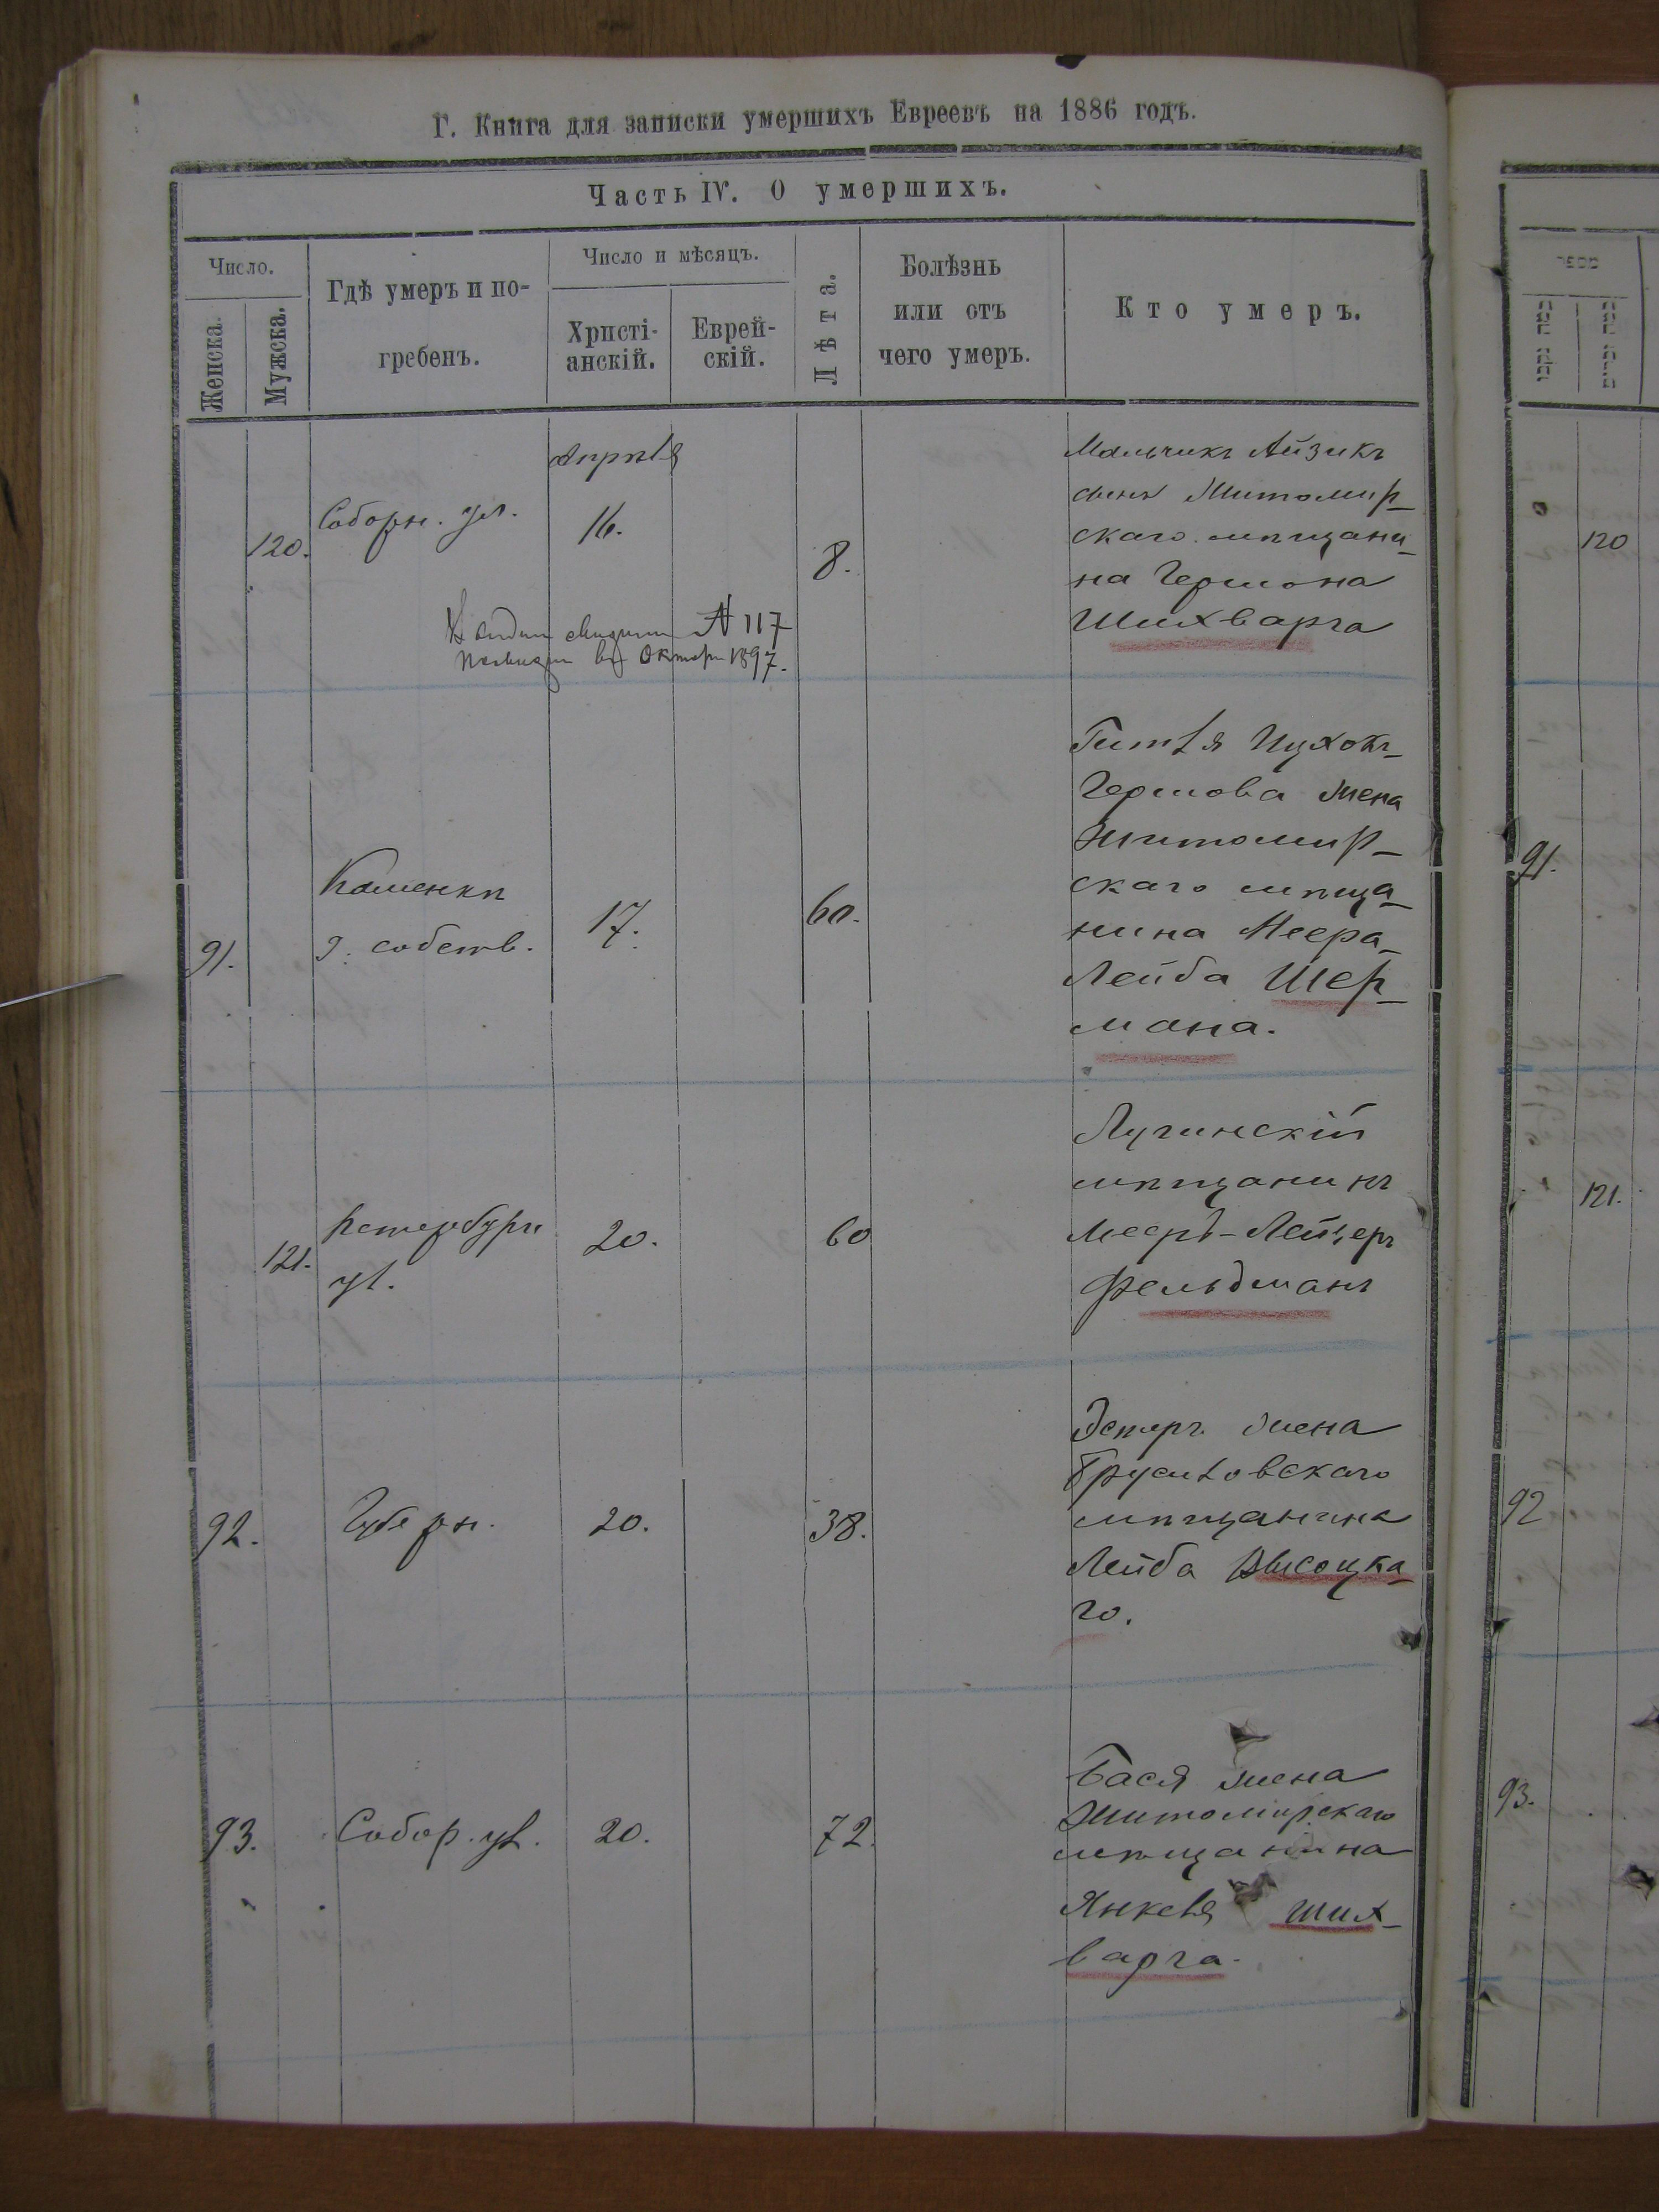 Г. Книга для записки умершихъ Евреевъ на 1886 годъ.
Часть IV. О умершихъ.
Число.
Женска.
Мужска.
Гдѣ умеръ и по-
гребенъ.
Число и мѣсяцъ.
Христі-
анскій.
Еврей-
скій.
Лѣта.
Болѣзнь
или отъ
чего умеръ.
Кто умеръ.
120.
Соборн. ул.
Апрѣля
16.
8.
Мальчикъ Айзикъ
сынъ Житомир-
скаго мѣщани-
на Гершона
Шихварга
№ 117
въ Октяр 1897.
91.
Каменки
собств.
17.
60.
Гитля Ицхокъ-
Гершова жена
Житомир-
скаго мѣща-
нина Меера-
Лейба Шер-
мана.
121.
Петербург
ул.
20.
60
Лугинскій
мѣщанинъ
Мееръ-Лейзеръ
Фельдманъ
92.
Губерн.
20.
38.
Эстеръ жена
Трусиловскаго
мѣщанина
Лейба Высоцка-
го.
93.
Собор. ул.
20.
72.
Бася жена
Житомирскаго
мѣщанина
Янкеля Ших-
варга.
מספר
120
91.
121.
92
93.